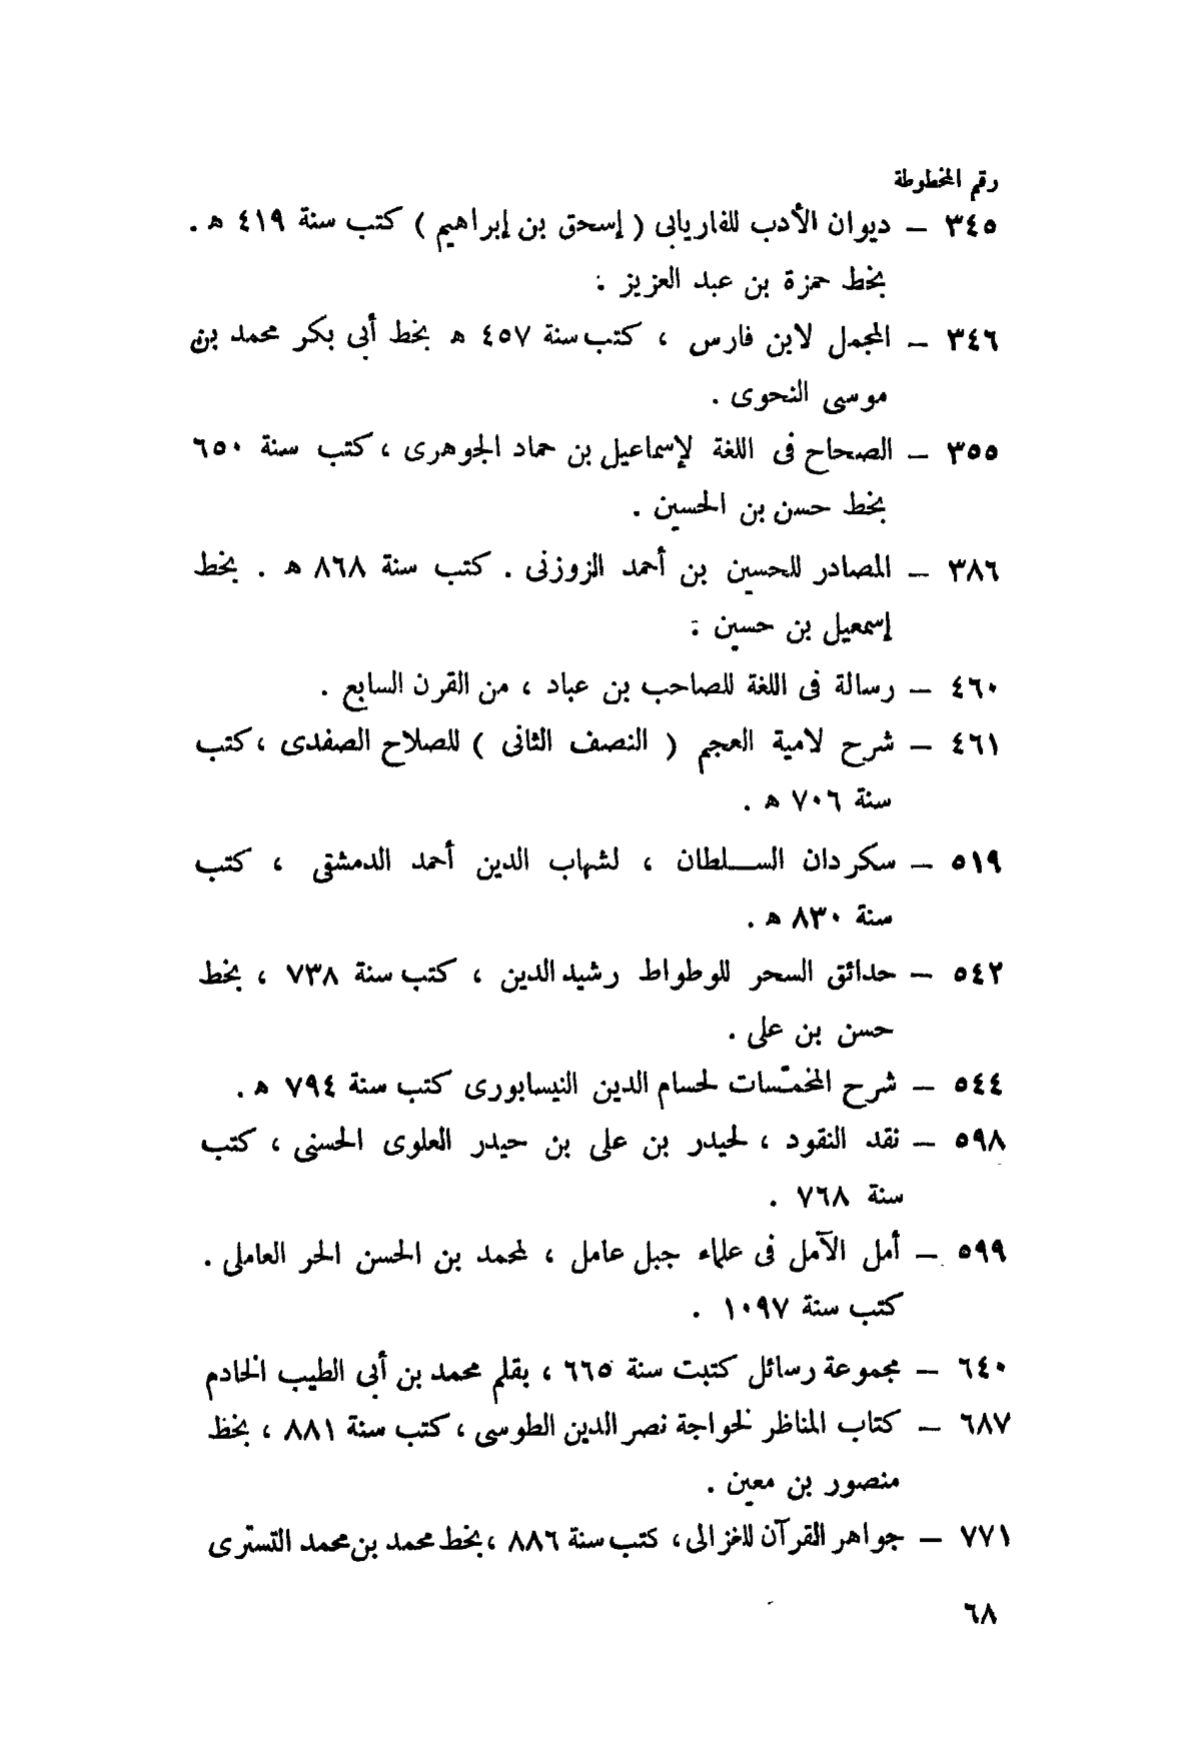 رقم المخطوطة
٣٤٥ – ديوان الأدب للفاريابى ( إسحق بن إبراهيم ) كتب سنة ٤١٩ ه .
بخط حمزة بن عبد العزيز .
٣٤٦ – المجمل لابن فارس ، كتب سنة ٤٥٧ ه بخط أبى بكر محمد بن
موسى النحوى .
٣٥٥ – الصحاح فى اللغة لإسماعيل بن حماد الجوهرى ، كتب سنة ٦٥٠
بخط حسن بن الحسين .
٣٨٦ – المصادر للحسين بن أحمد الزوزنى . كتب سنة ٨٦٨ ه . بخط
إسمعيل بن حسين .
٤٦٠ – رسالة فى اللغة للصاحب بن عباد ، من القرن السابع .
٤٦١ – شرح لامية العجم ( النصف الثانى ) للصلاح الصفدى ، كتب
سنة ٧٠٦ ه .
٥١٩ – سكردان الســلطان ، لشهاب الدين أحمد الدمشقى ، كتب
سنة ٨٣٠ ه .
٥٤٢ – حدائق السحر للوطواط رشيد الدين ، كتب سنة ٧٣٨ ، بخط
حسن بن على .
٥٤٤ – شرح المخمّسات لحسام الدين النيسابورى كتب سنة ٧٩٤ ه .
٥٩٨ – نقد النقود ، لحيدر بن على بن حيدر العلوى الحسنى ، كتب
سنة ٧٦٨ .
٥٩٩ – أمل الآمل فى علماء جبل عامل ، لمحمد بن الحسن الحر العاملى .
كتب سنة ١٠٩٧ .
٦٤٠ – مجموعة رسائل كتبت سنة ٦٦٥ ، بقلم محمد بن أبى الطيب الخادم
٦٨٧ – كتاب المناظر لخواجة نصر الدين الطوسى ، كتب سنة ٨٨١ ، بخط
منصور بن معين .
٧٧١ – جواهر القرآن للغزالى ، كتب سنة ٨٨٦ ، بخط محمد بن محمد التسترى
٦٨